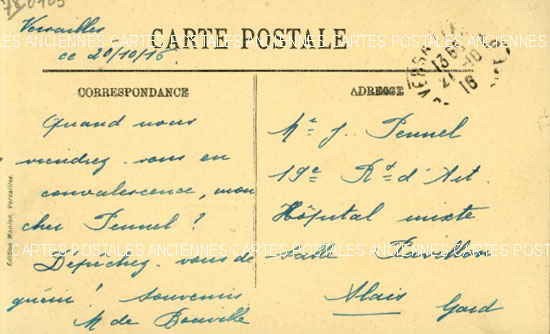 Versailles
ce 20/10/16
CARTE POSTALE
CARTES POSTALES ANCIENNES CARTES POSTALES ANCIENNES CARTES POSTALES
CORRESPONDANCE
Quand nous
viendrez-vous en
convalescence, mon
cher Pennel ?
Dépêchez-vous de
guérir ! Souvenirs
M de Bouville
ADRESSE
Mr J. Pennel
19e Rt d'Art.
Hôpital mixte
salle Pavillon
Alais Gard
CARTES POSTALES ANCIENNES CARTES POSTALES ANCIENNES CARTES POSTALES
VERSA
13
21 10
16
Edition Manion, Versailles.